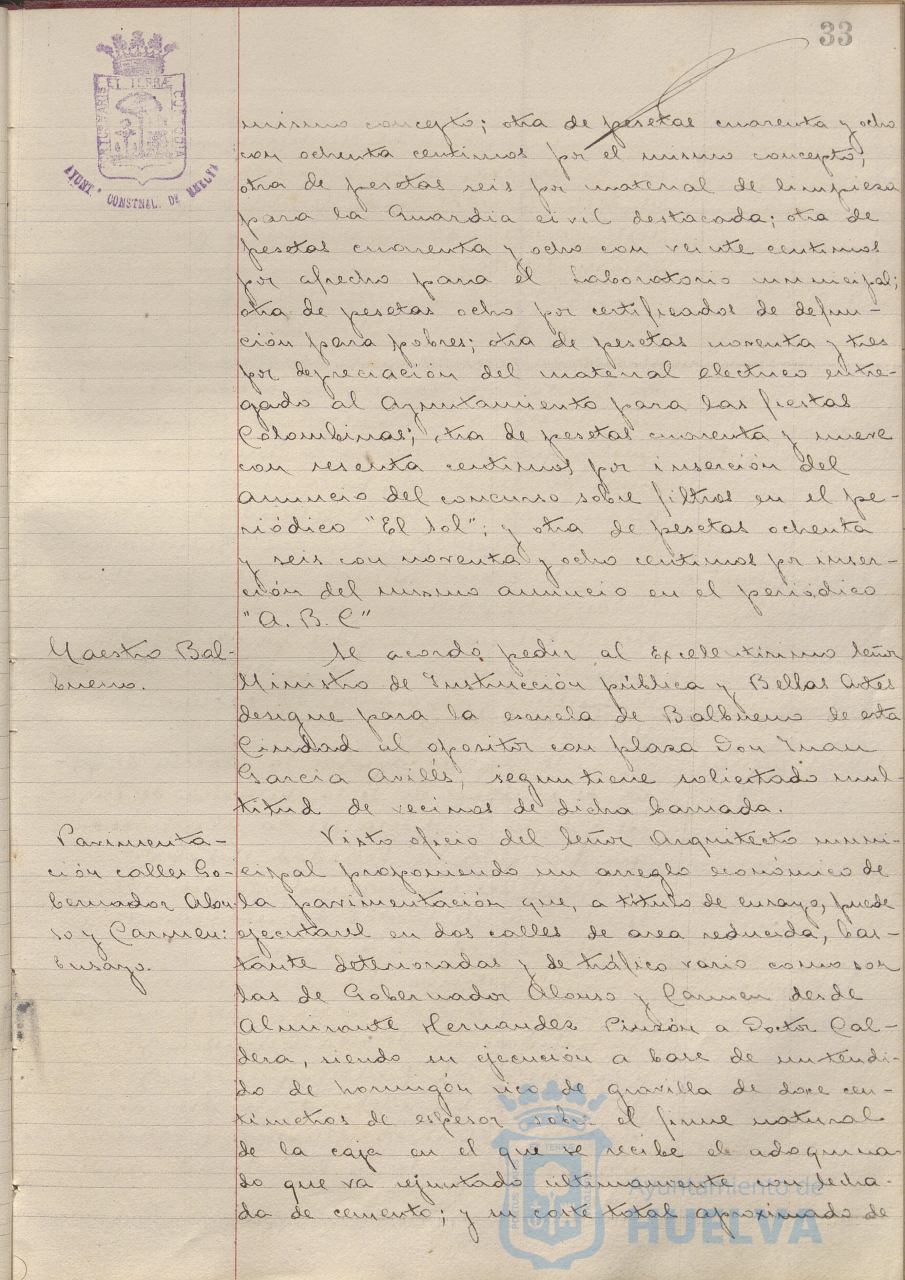 33
PORTUS MARIS ET TERRÆ CUSTODIA
AYUNT. CONSTNAL. DE HUELVA
mismo concepto; otra de pesetas cuarenta y ocho
con ochenta centimos por el mismo concepto;
otra de pesetas seis por material de limpiesa
para la Guardia civil destacada; otra de
pesetas cuarenta y ocho con veinte centimos
por afrecho para el Laboratorio municipal;
otra de pesetas ocho por certificados de defun-
ción para pobres; otra de pesetas noventa y tres
por depreciación del material electrico entre-
gado al Ayuntamiento para las fiestas
Colombinas; otra de pesetas cuarenta y nueve
con sesenta centimos por inserción del
anuncio del concurso sobre filtros en el pe-
riódico "El Sol"; y otra de pesetas ochenta
y seis con noventa y ocho centimos por inser-
ción del mismo anuncio en el periódico
"A. B. C"
Maestro Bal-
bueno.
Se acordó pedir al Excelentisimo Señor
Ministro de Instrucción pública y Bellas Artes
designe para la escuela de Balbueno de esta
Ciudad al opositor con plaza Don Juan
Garcia Avilés, segun tiene solicitado mul-
titud de vecinos de dicha barriada.
Pavimenta-
ción calles Go-
bernador Alon-
so y Carmen:
Ensayo.
Visto oficio del Señor Arquitecto muni-
cipal proponiendo un arreglo económico de
la pavimentación que, a titulo de ensayo, puede
ejecutarse en dos calles de area reducida, bas-
tante deterioradas y de tráfico vario como son
las de Gobernador Alonso y Carmen desde
Almirante Hernandez Pinzón a Doctor Cal-
dera, siendo su ejecución a base de un tendi-
do de hormigón rico de gravilla de doce cen-
timetros de espesor sobre el firme natural
de la caja en el que se recibe el adoquina-
do que va rejuntado ultimamente con lecha-
da de cemento; y su coste total aproximado de
Ayuntamiento de
HUELVA